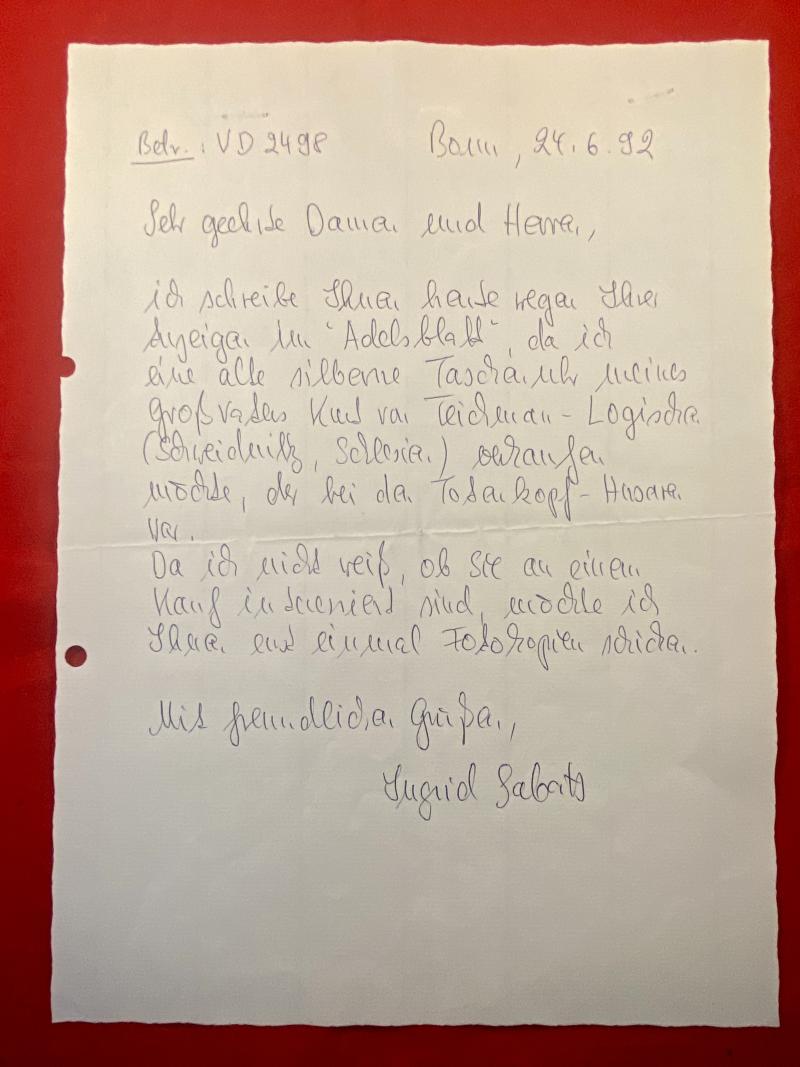 Betr.: VD 2498 Bonn, 24.6.92
Sehr geehrte Damen und Herren,
ich schreibe Ihnen heute wegen Ihrer
Anzeige im "Adelsblatt", da ich
eine alte silberne Taschenuhr meines
Großvaters Kurt von Teichman-Logischen
(Schweidnitz, Schlesien) verkaufen
möchte, der bei den Totenkopf-Husaren
war.
Da ich nicht weiß, ob Sie an einem
Kauf interessiert sind, möchte ich
Ihnen erst einmal Fotokopien schicken.
Mit freundlichen Grüßen,
Ingrid